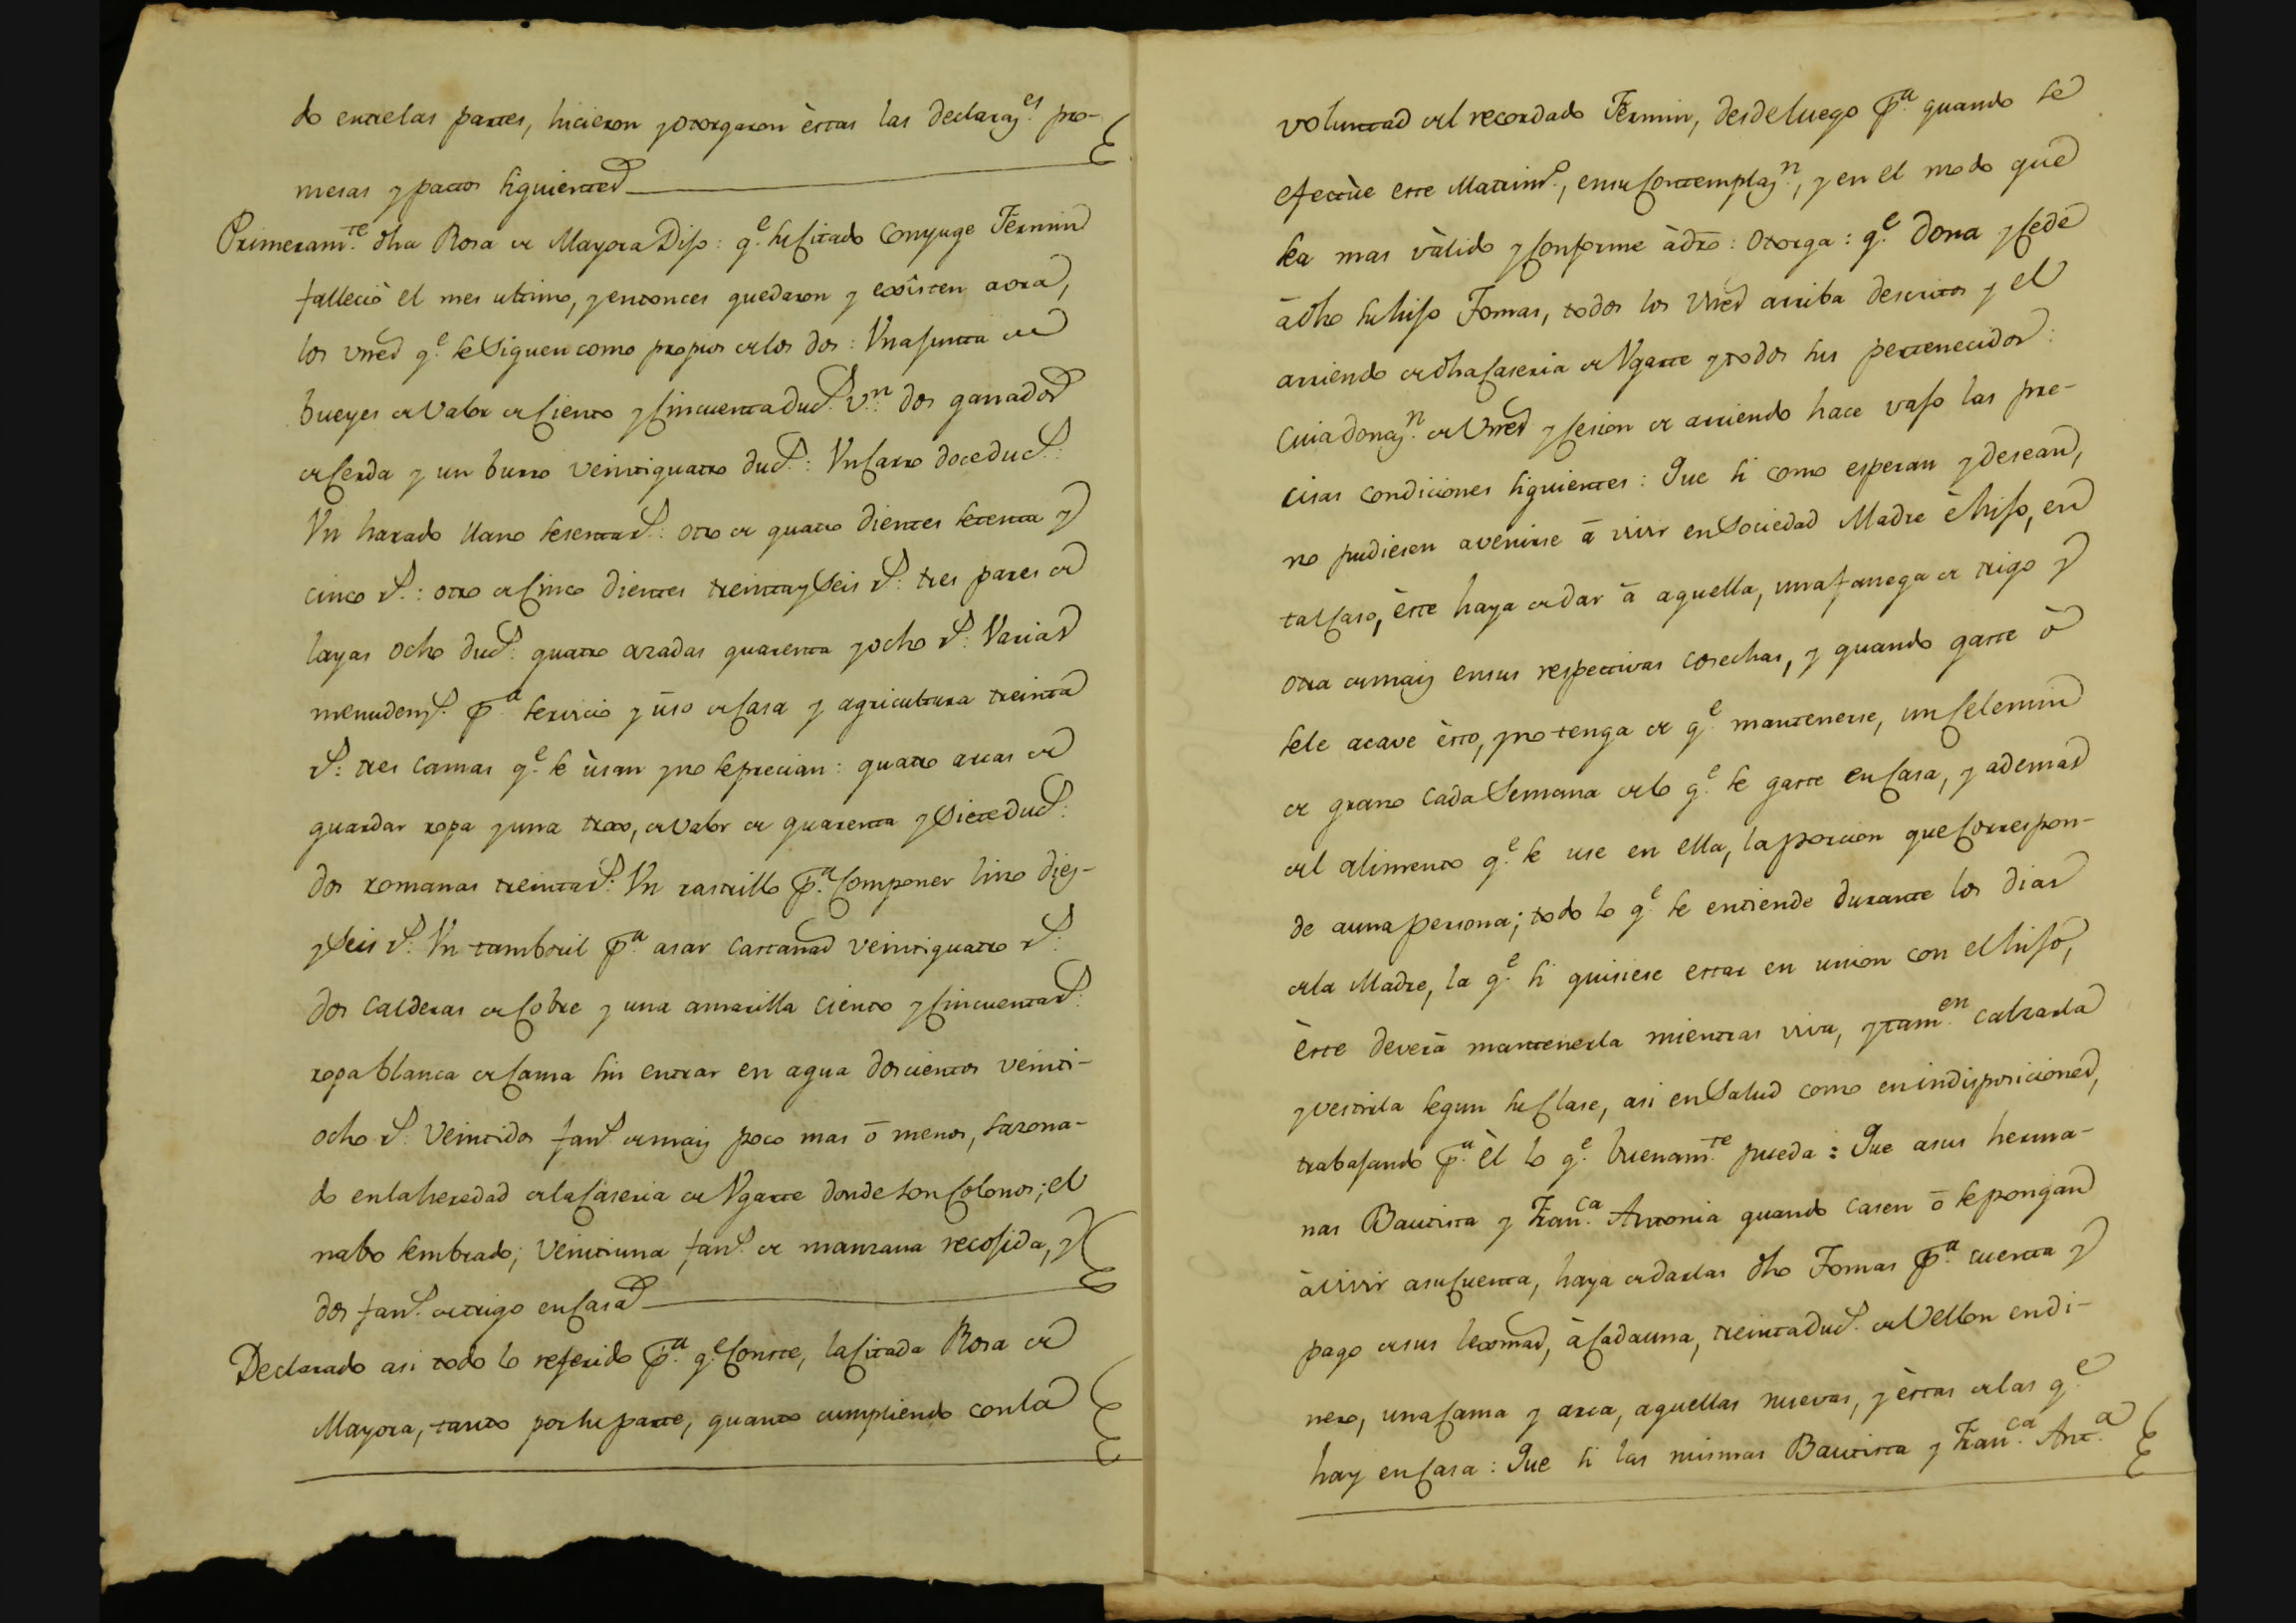 do entrelas partes, hicieron y otorgaron èstas las declaraz.es pro-
mesas y pactos siguientes
Primeram.te dha Rosa de Mayora Dijo: q.e su citado Conyuge Fermin
falleciò el mes ultimo, y entonces quedaron y exîsten aora,
los vnes q.e se Siguen como propios de los dos: Una junta de
bueyes de Valor de Ciento y Cincuenta duc.s v.n dos ganados
de Cerda y un burro veintiquatro duc.s: Un Carro doce duc.s:
Un harado llano sesenta r.s: otro de quatro dientes setenta y
cinco r.s: otro de Cinco dientes treinta y Seis r.s: tres pares de
layas ocho duc.s: quatro azadas quarenta y ocho r.s: Varias
menudenz.s p.a servicio y ùso de Casa y agricultura treinta
r.s: tres camas q.e se ùsan y no se precian: quatro arcas de
guardar ropa y una troxo, de Valor de quarenta y Siete duc.s:
dos romanas treinta r.s: Un rastrillo p.a Componer lino diez-
y Seis r.s: Un tamboril p.a asar castañas veintiquatro r.s:
dos calderas de Cobre y una amarilla ciento y Cincuenta r.s:
ropa blanca de Cama sin entrar en agua doscientos veinti-
ocho r.s: Veintidos fan.s de maiz poco mas ò menos, sazona-
do en la heredad de la Caseria de Ugarte donde son Colonos; el
nabo sembrado; Veintiuna fan.s de manzana recojida, y
dos fan.s de trigo en Casa
Declarado asi todo lo referido p.a q.e Conste, la Citada Rosa de
Mayora, tanto por su parte, quanto cumpliendo con la
voluntad del recordado Fermin, desde luego p.a quando se
efectùe este Matrim.o, en su Contemplaz.n, y en el modo que
sea mas vàlido y Conforme à dro: Otorga: q.e dona y Cede
à dho su hijo Tomas, todos los Vnes arriba descritos y el
arriendo de dha Caseria de Ugarte y todos sus pertenecidos:
Cuia donaz.n de Vnes y Cesion de arriendo hace vajo las pre-
cisas condiciones siguientes: Que si como esperan y desean,
no pudiesen avenirse à vivir en Sociedad Madre è hijo, en
tal Caso, èste haya de dar à aquella, una fanega de trigo y
otra de maiz en sus respectivas cosechas, y quando gaste ò
sele acave èsto, y no tenga de q.e mantenerse, un Celemin
de grano cada Semana de lo q.e se gaste en Casa, y ademas
del alimento q.e se use en ella, la porcion que Correspon-
de a una persona; todo lo q.e se entiende durante los dias
de la Madre, la q.e si quisiese estar en union con el hijo,
èste deverà mantenerla mientras viva, y tam.en calzarla
y vestirla segun su Clase, asi en Salud como en indisposiciones,
trabajando p.a èl lo q.e buenam.te pueda: Que a sus herma-
nas Bautista y Fran.ca Antonia quando casen ò se pongan
à vivir a su Cuenta, haya de darlas dho Tomas p.a cuenta y
pago de sus lexmas, à Cada una, treinta duc.s de Vellon en di-
nero, una Cama y arca, aquellas nuevas, y èstas de las q.e
hay en Casa: Que si las mismas Bautista y Fran.ca Ant.a